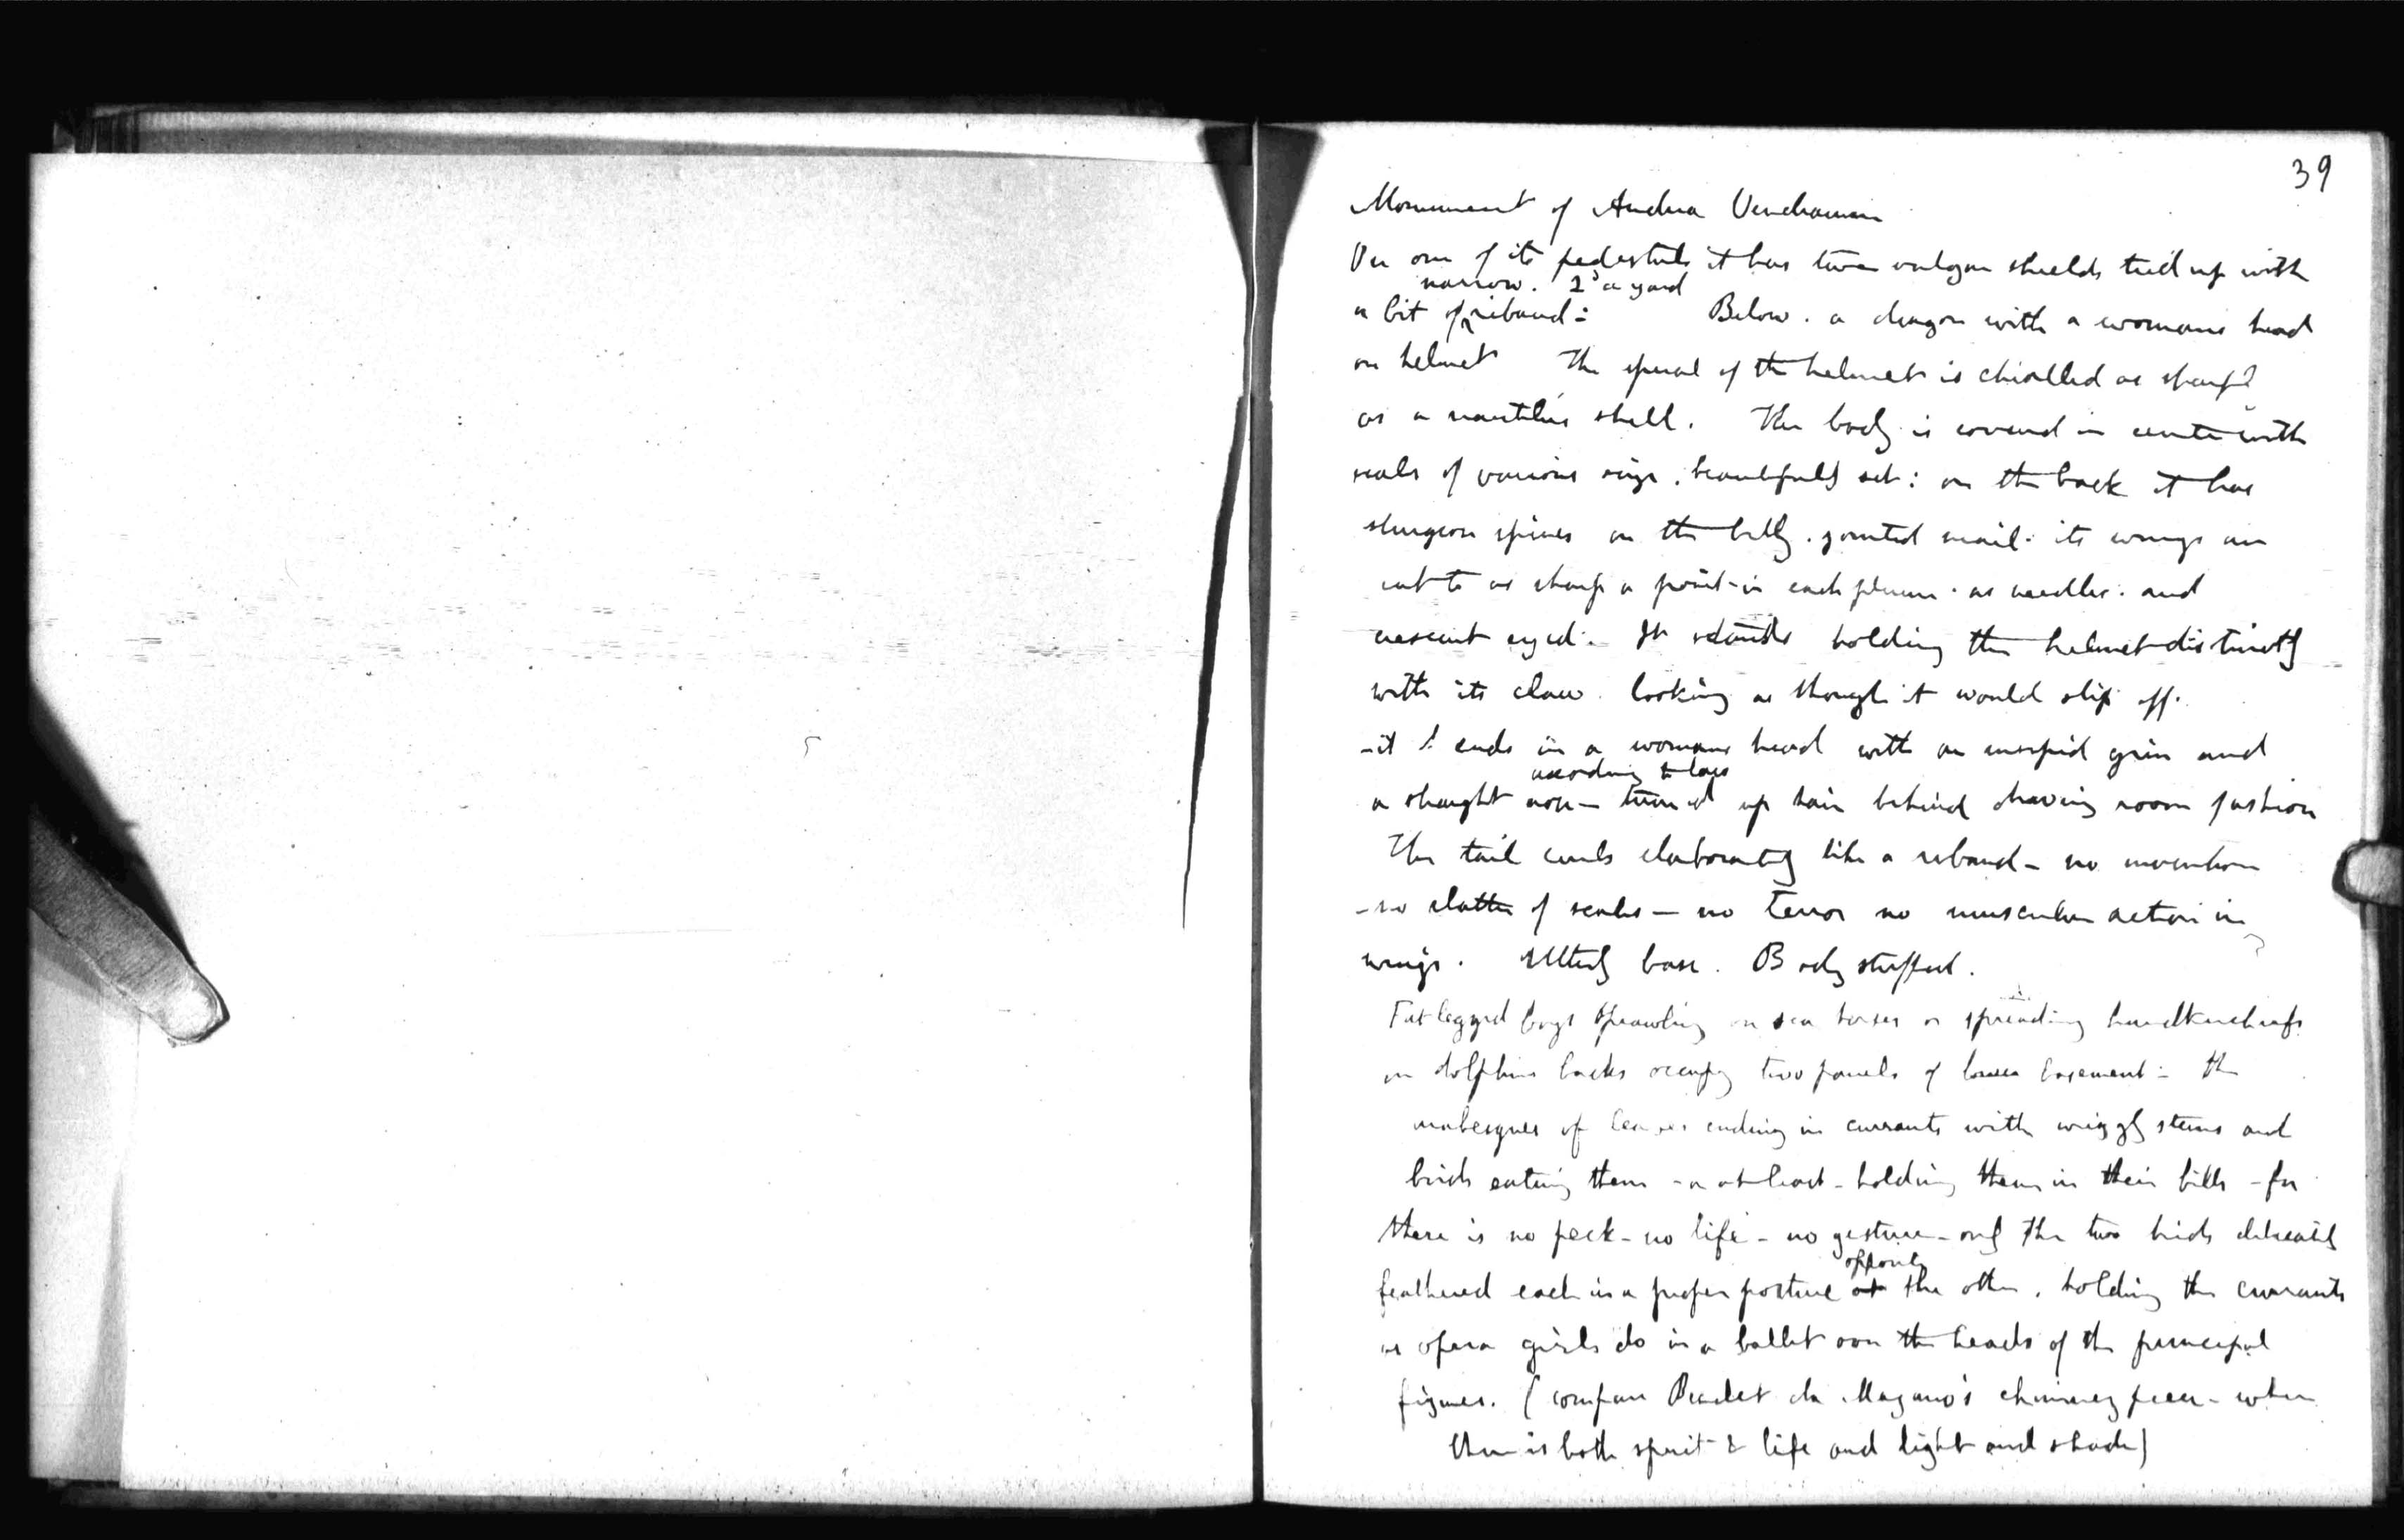 39
Monument of Andrea Vendramin
On one of its pedestals it has two vulgar shields tied up with
narrow. 2s a yard
a bit of riband: Below. a dragon with a womans head
on helmet The spiral of the helmet is chiselled as sharply
as a nautilus shell. The body is covered in centre with
scales of various size, beautifully set: on the back it has
sturgeon spines on the belly. jointed mail. its wings are
cut to as sharp a point in each plume. as needles. and
crescent eyed. It stands holding the helmet distinctly
with its claw. looking as though it would slip off.
- it ends in a womans head with an insipid grin and
according to laws
a straight nose - turned up hair behind drawing room fashion
The tail curls elaborately like a riband - no invention
- no clatter of scales - no terror no muscular action in
wings. Utterly base. Body stuffed.
Fat legged boys sprawling on sea horses or spreading handkerchiefs
on dolphins backs occupy two panels of lower basement: the
arabesques of leaves ending in currants with wriggly stems and
birds eating them - or at least - holding them in their bills - for
there is no peck - no life - no gesture - only the two birds delicately
opposite
feathered each in a proper posture at the other, holding the currants
as opera girls do in a ballet over the heads of the principal
figures. (compare Maganio's chimney piece - where
there is both spirit & life and light and shade)